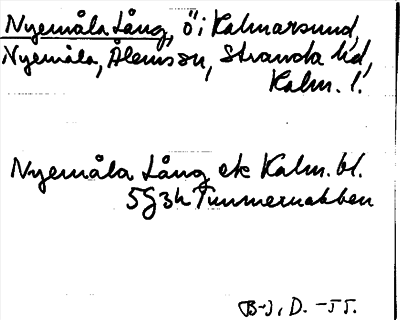 Nyemåla Lång, ö i Kalmarsund,
Nyemåla, Ålemson, Stranda hd,
Kalm. l.
Nyemåla Lång ek Kalm. bl.
5G3h Timmernabben
B-J, D. -55.